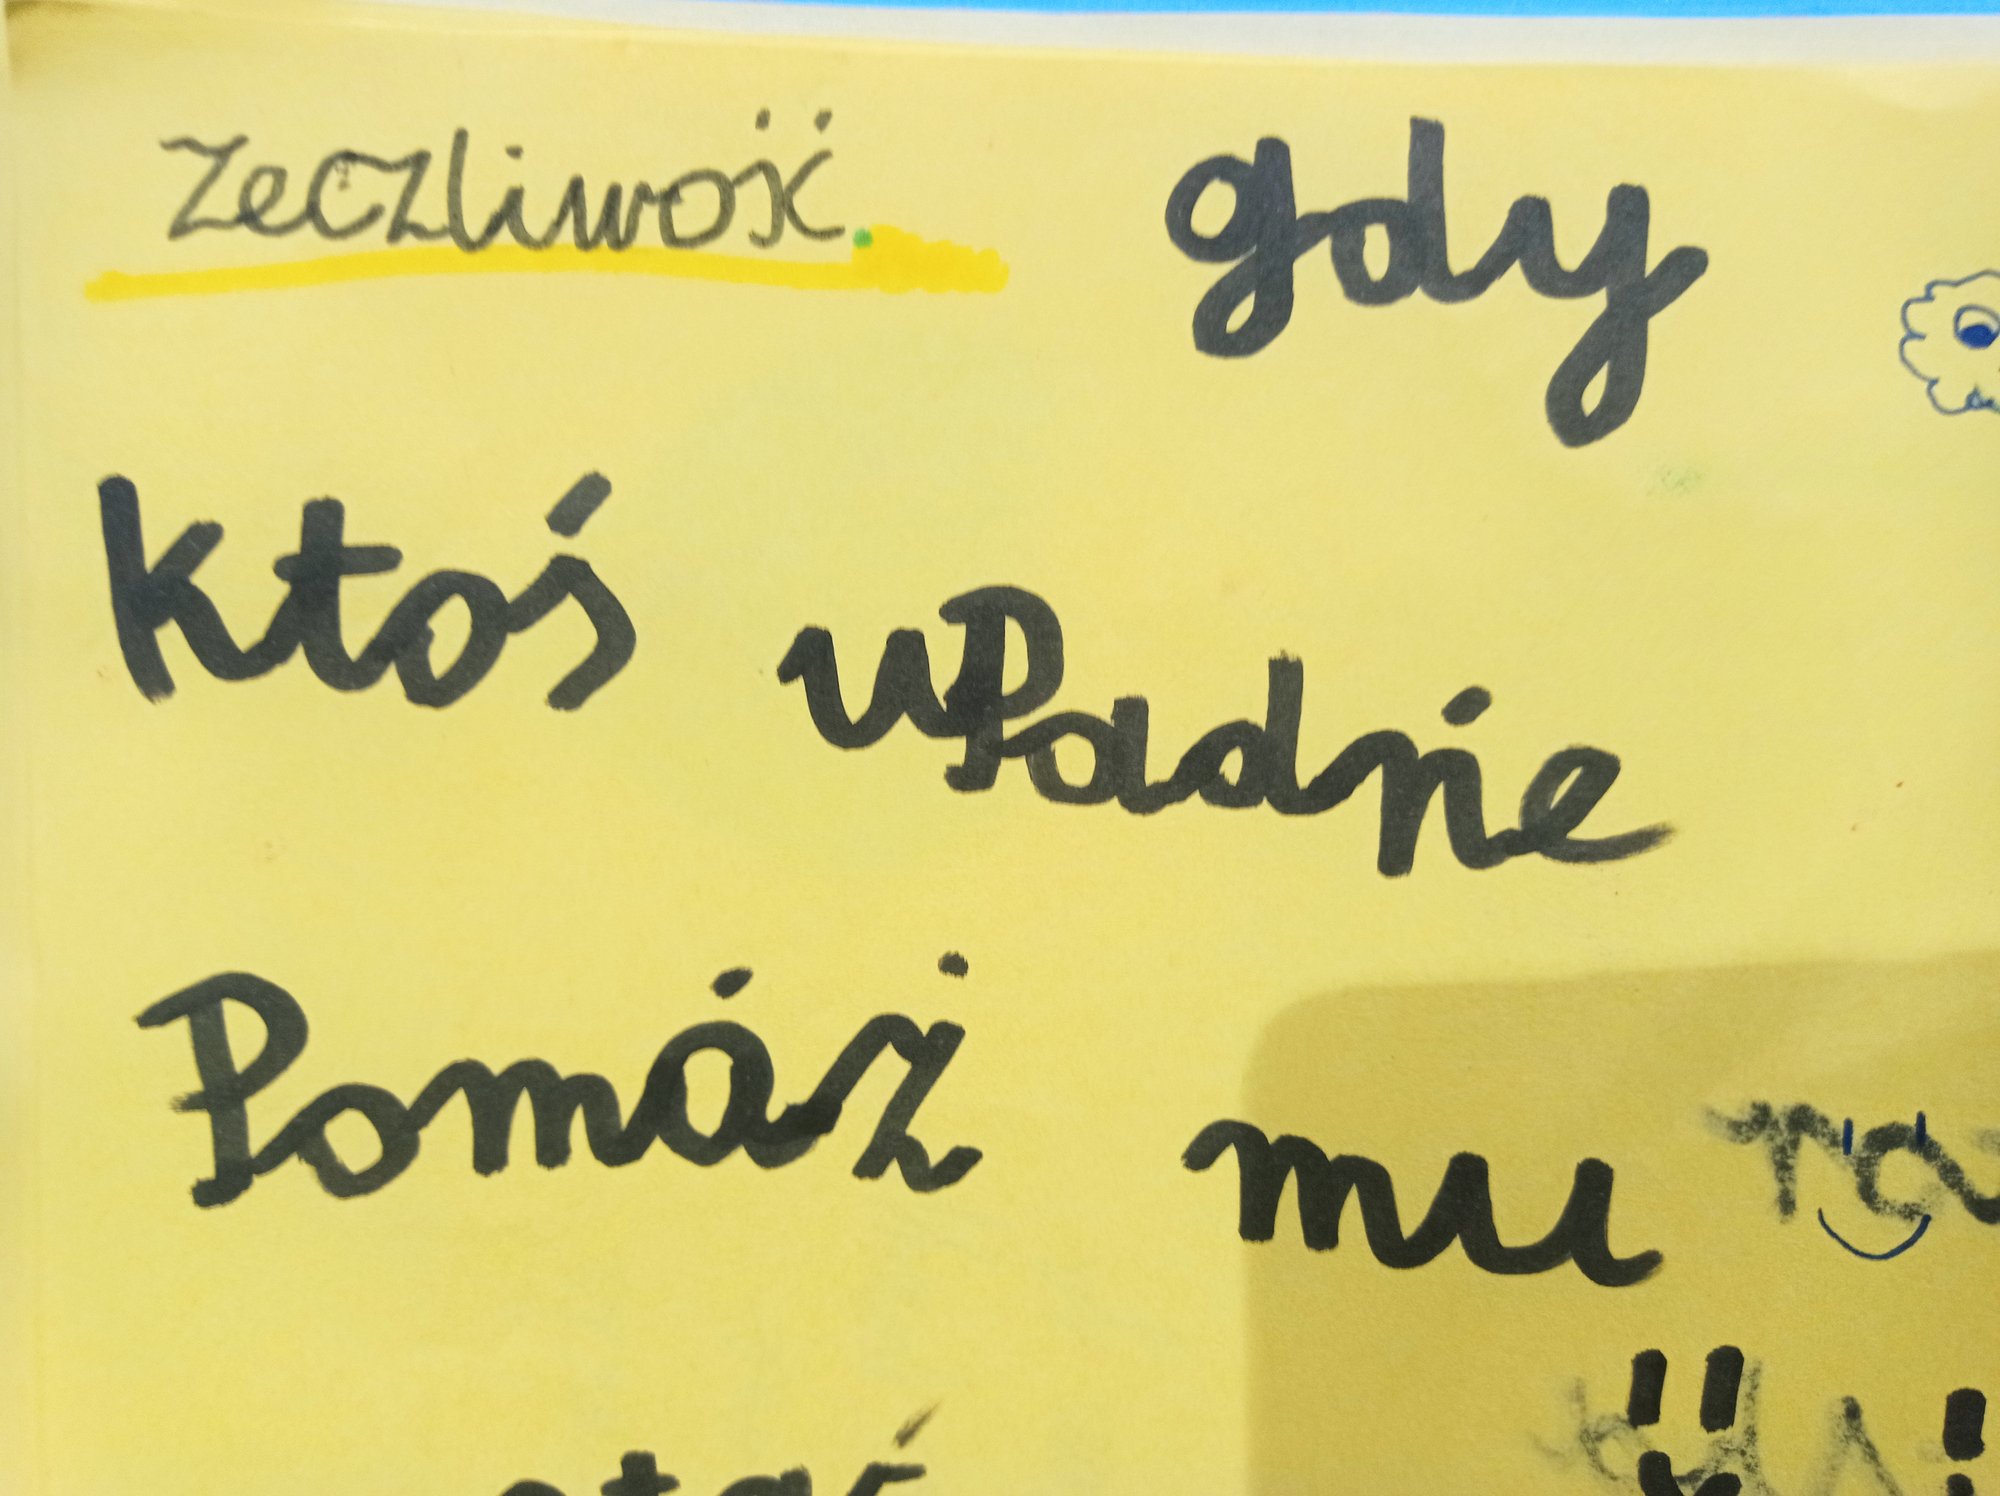 zeczliwość. gdy
Ktoś uPadnie
Pomóż mu